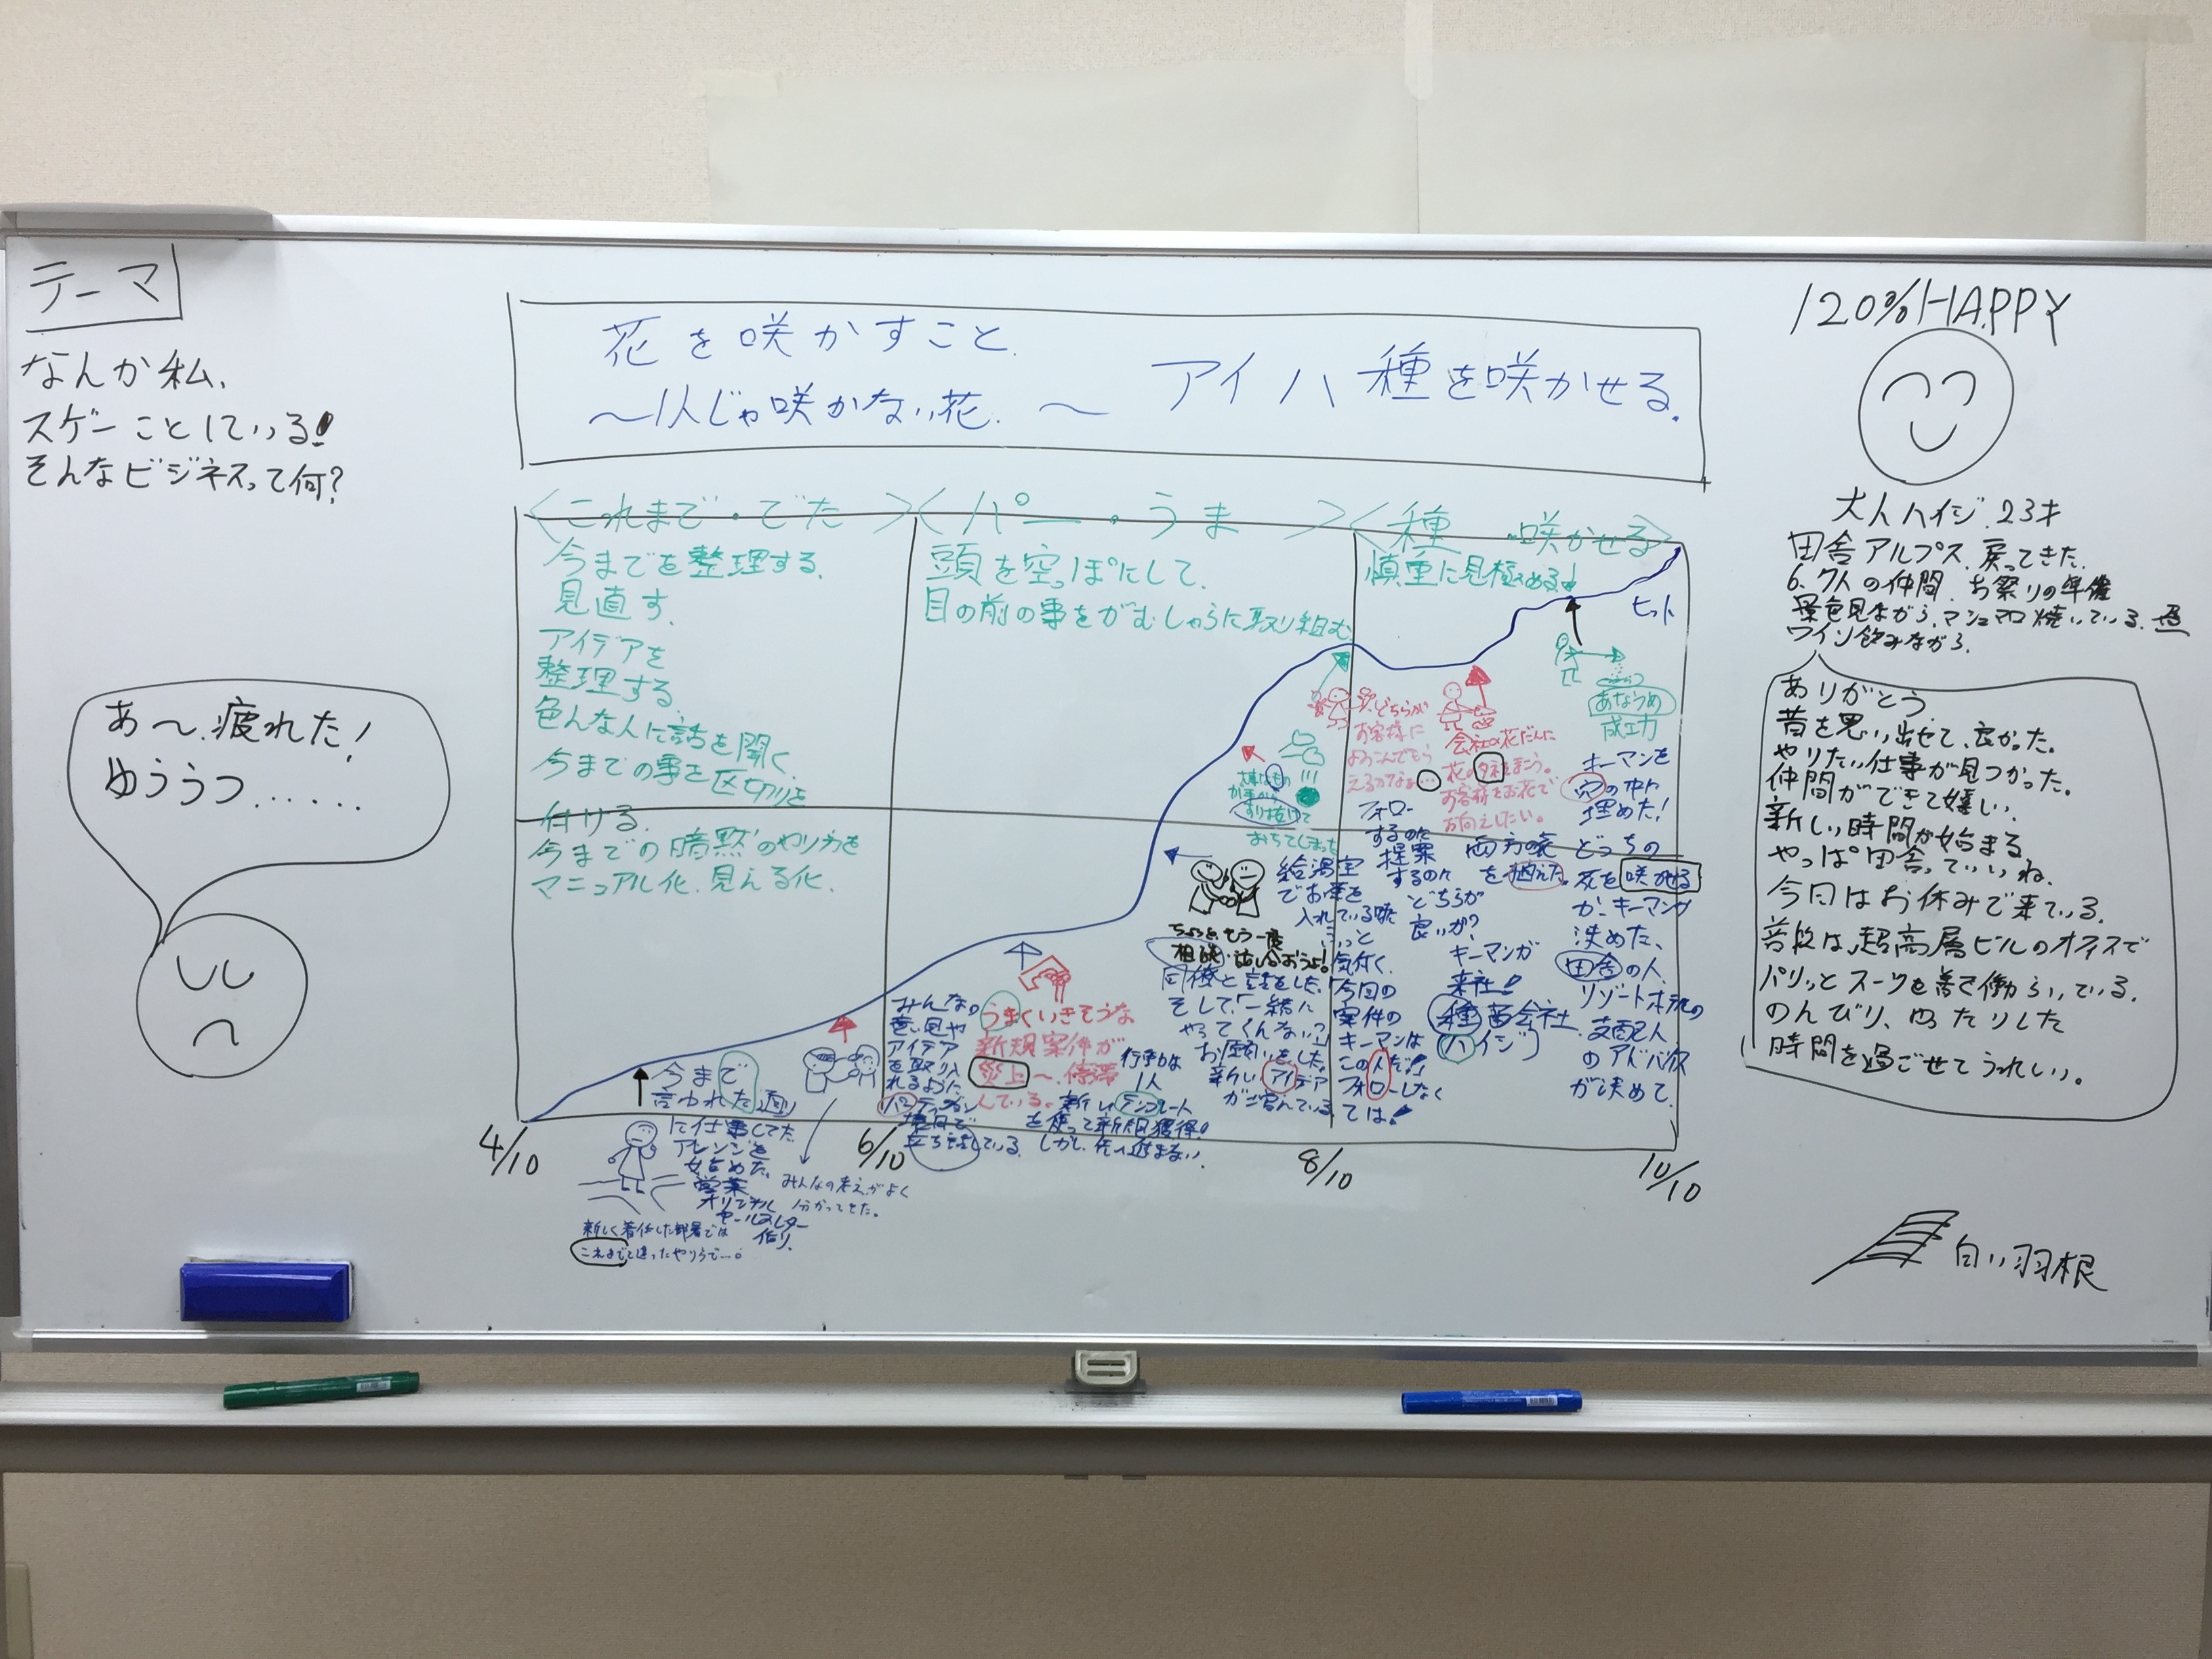 テーマ
なんか私、
スゲーことしている!
そんなビジネスって何?
あ〜、疲れた!
ゆううつ……
花を咲かすこと.
〜1人じゃ咲かない花.〜
アイハ種を咲かせる.
<これまで・でた>
今までを整理する.
見直す.
アイデアを
整理する.
色んな人に話を聞く.
今までの事を区切りを
付ける.
今までの暗黙のやり方を
マニュアル化.見える化.
<パー・うま>
頭を空っぽにして.
目の前の事をがむしゃらに取り組む
<種 咲かせる>
慎重に見極める!
ヒット
4/10
6/10
8/10
10/10
今まで
言われた通り
に仕事してた
アレンジを
営業
オリジナル
セールスレター
作り.
新しく着任した部署では
これまでと違ったやり方で…。
みんなの考えがよく
分かってきた。
みんなの
意見や
アイデア
を取り入
れるように
立ち話している.
うまくいきそうな
新規案件が
炎上〜.停滞
んでいる.
行動は
1人
新しいテンプレート
を使って新規獲得!
しかし、先へ進まない.
ちょっと、もう一度
相談・話し合おうよ!
同僚と話をした.
そして「一緒に
やってくんない?」
お願いをした.
新しいアイデア
が
すり抜けて
おちてしまった
給湯室
でお茶を
入れている時
気付く.
「今回の
案件の
キーマンは
この人だ!」
フォローしなく
ては!
どちらが
お客様に
よろこんでもら
えるかなぁ…
フォロー
するのか
提案
するのか
どちらが
良いか?
キーマンが
来社!
種苗会社
ハイジ
会社の花だんに
花のタネをまこう。
お客様をお花で
お向えしたい。
両方の意
を
あなうめ
成功
キーマンを
穴の中に
埋めた!
どっちの
花を咲かせる
か、キーマンが
決めた、
田舎の人
リゾートホテルの
支配人
のアドバイス
が決めて.
120%HAPPY
大人ハイジ.23才
田舎アルプス.戻ってきた.
6、7人の仲間、お祭りの準備
景色見ながら、マシュマロ焼いている.
ワイン飲みながら.
ありがとう
昔を思い出せて、良かった.
やりたい仕事が見つかった.
仲間ができて嬉しい.
新しい時間が始まる
やっぱ田舎っていいね.
今日はお休みで来ている.
普段は、超高層ビルのオフィスで
パリッとスーツを着て働らいている.
のんびり、ゆったりした
時間を過ごせてうれしい。
白い羽根